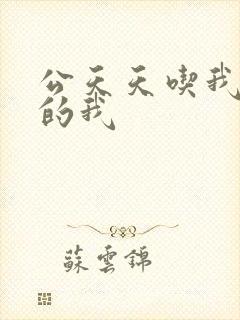 公天天喫我
的我
蘇雲錦